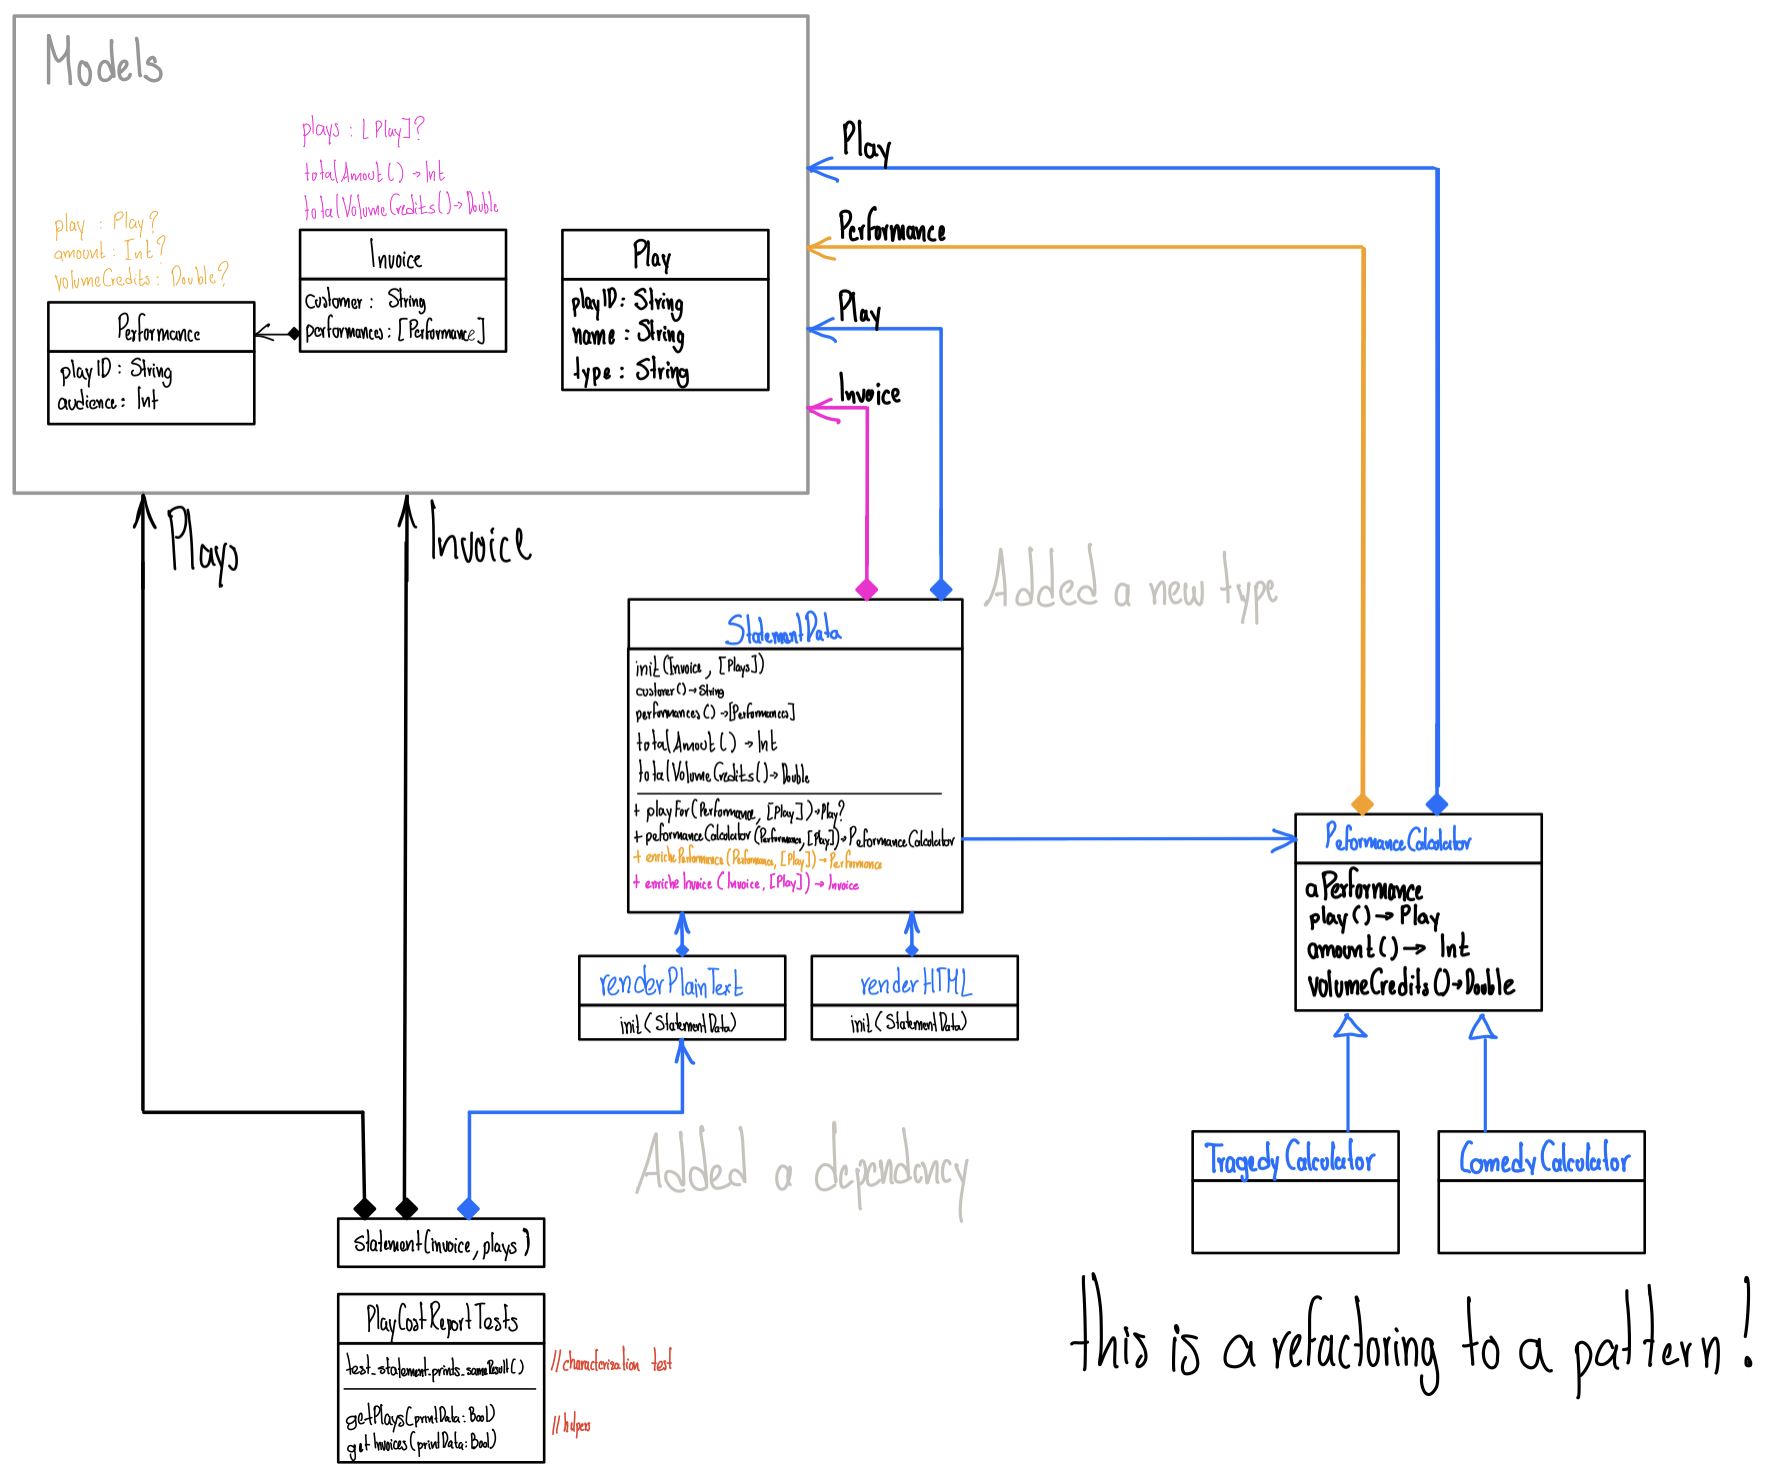 Models
plays : [Play]?
totalAmout() → Int
totalVolumeCredits() → Double
play : Play?
amount : Int?
volumeCredits : Double?
Invoice
customer : String
performances : [Performance]
Performance
playID : String
audience : Int
Play
playID : String
name : String
type : String
Play
Performance
Play
Invoice
Plays
Invoice
Added a new type
StatementData
init(Invoice, [Plays])
customer() → String
performances() → [Performances]
totalAmout() → Int
totalVolumeCredits() → Double
+ playFor(Performance, [Play]) → Play?
+ peformanceCalculator(Performance, [Play]) → PeformanceCalculator
+ enrichePerformance(Performance, [Play]) → Performance
+ enricheInvoice(Invoice, [Play]) → Invoice
PeformanceCalculator
aPerformance
play() → Play
amount() → Int
volumeCredits() → Double
renderPlainText
init(StatementData)
renderHTML
init(StatementData)
Added a dependency
TragedyCalculator
ComedyCalculator
statement(invoice, plays)
this is a refactoring to a pattern!
PlayCostReportTests
test_statement_prints_sameResult()
//characterization test
getPlays(printData: Bool)
getInvoices(printData: Bool)
//helpers